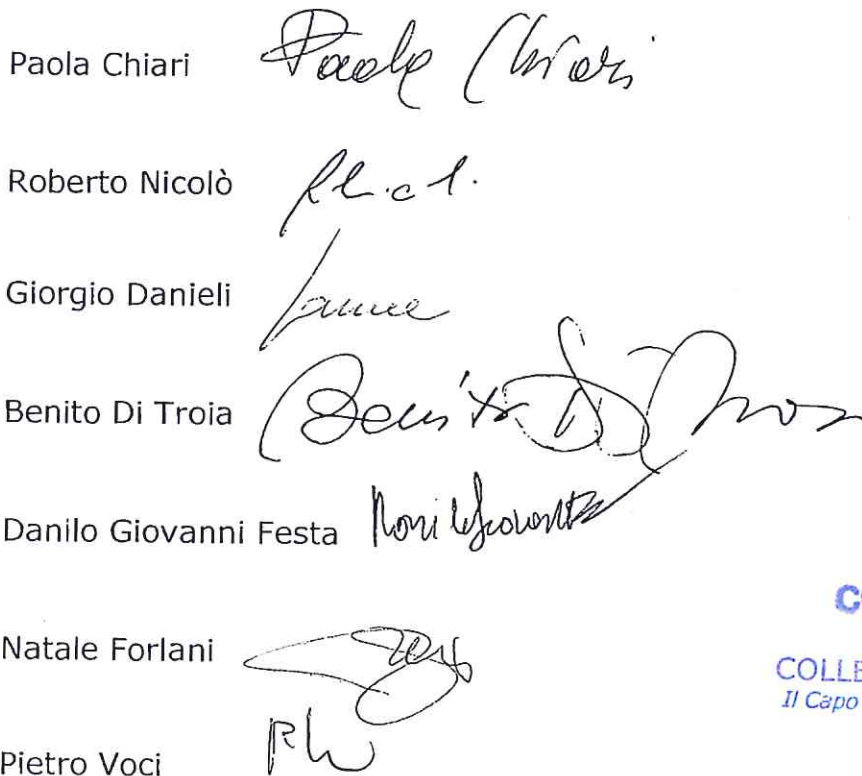 Paola Chiari Paola Chiari
Roberto Nicolò
Giorgio Danieli
Benito Di Troia Benito Di Troia
Danilo Giovanni Festa
Natale Forlani
COLLE
Il Capo
Pietro Voci